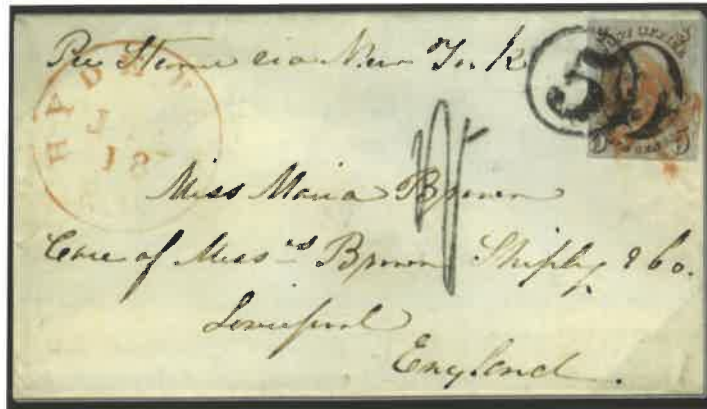 Per Steamer via New York
5
POST OFFICE
5 5
HYDE P
J
18
1/-
Miss Maria Brown
Care of Mess.rs Brown Shipley & Co.
Liverpool
England.